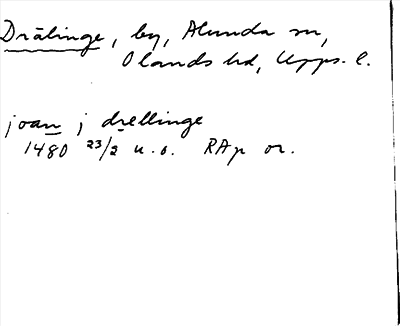 Drälinge, by, Alunda sn,
Olands hd, Upps. l.
joan j drellinge
1480 23/2 u.o. RAp or.